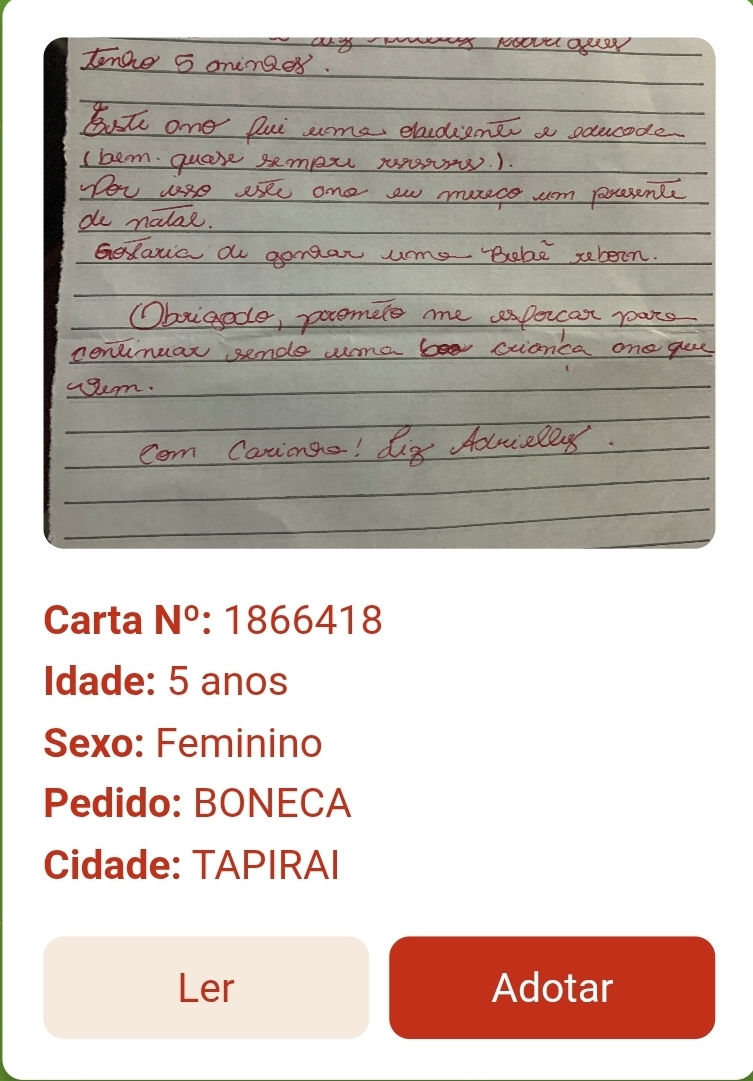 Liz Adrielly Rodrigues
Tenho 5 aninhos.
Este ano fui uma obediente e educada
(bem. quase sempre rsrsrsrs.).
Por isso este ano eu mereço um presente
de natal.
Gostaria de ganhar uma Bebê reborn.
Obrigado, prometo me esforçar para
continuar sendo uma boa criança ano que
vem.
Com Carinho! Liz Adrielly.
Carta Nº: 1866418
Idade: 5 anos
Sexo: Feminino
Pedido: BONECA
Cidade: TAPIRAI
Ler
Adotar